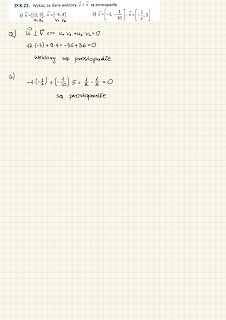 D 8.22. Wykaż, że dane wektory u⃗ i v⃗ są prostopadłe.
a) u⃗ = [12, 9], v⃗ = [-3, 4] b) u⃗ = [-1, -1/10], v⃗ = [-1/2, 5]
a) u⃗ ⊥ v⃗ <=> u₁v₁ + u₂v₂ = 0
12·(-3) + 9·4 = -36 + 36 = 0
Wektory są prostopadłe
b)
-1·(-1/2) + (-1/10)·5 = 1/2 - 1/2 = 0
są prostopadłe